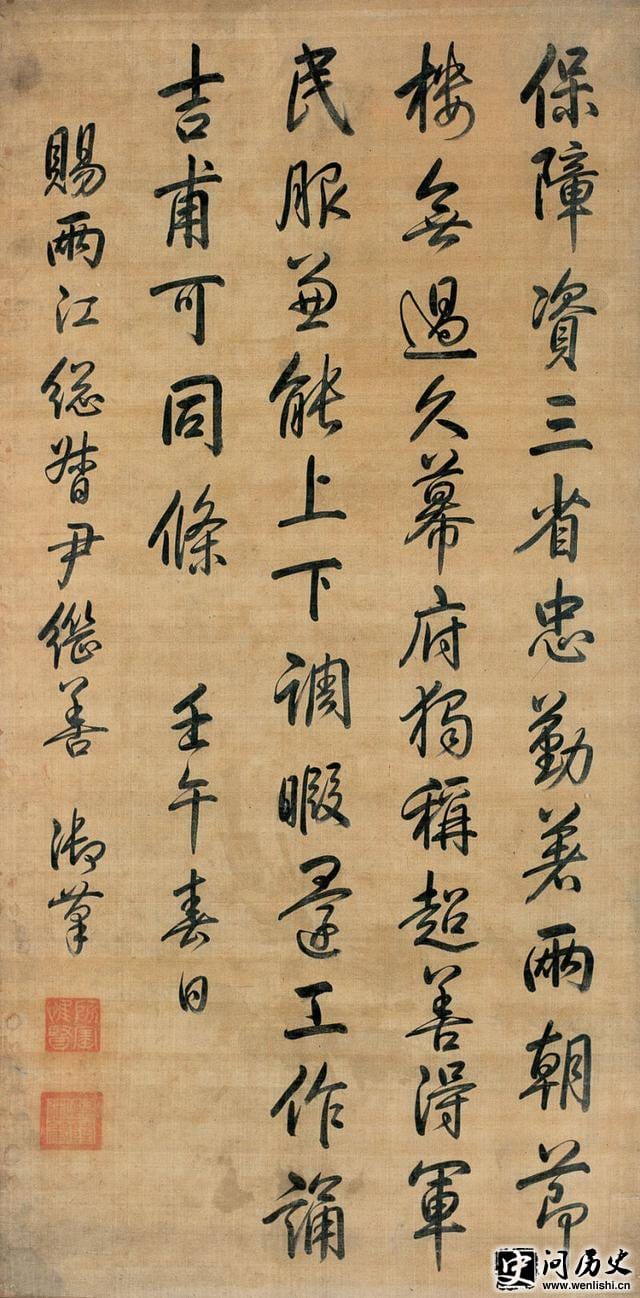 保障資三省忠勤著兩朝節
樓無過久幕府獨稱超善得軍
民服兼能上下調暇還工作誦
吉甫可同條 壬午春日
賜兩江總督尹繼善 御筆
问历史
www.wenlishi.cn